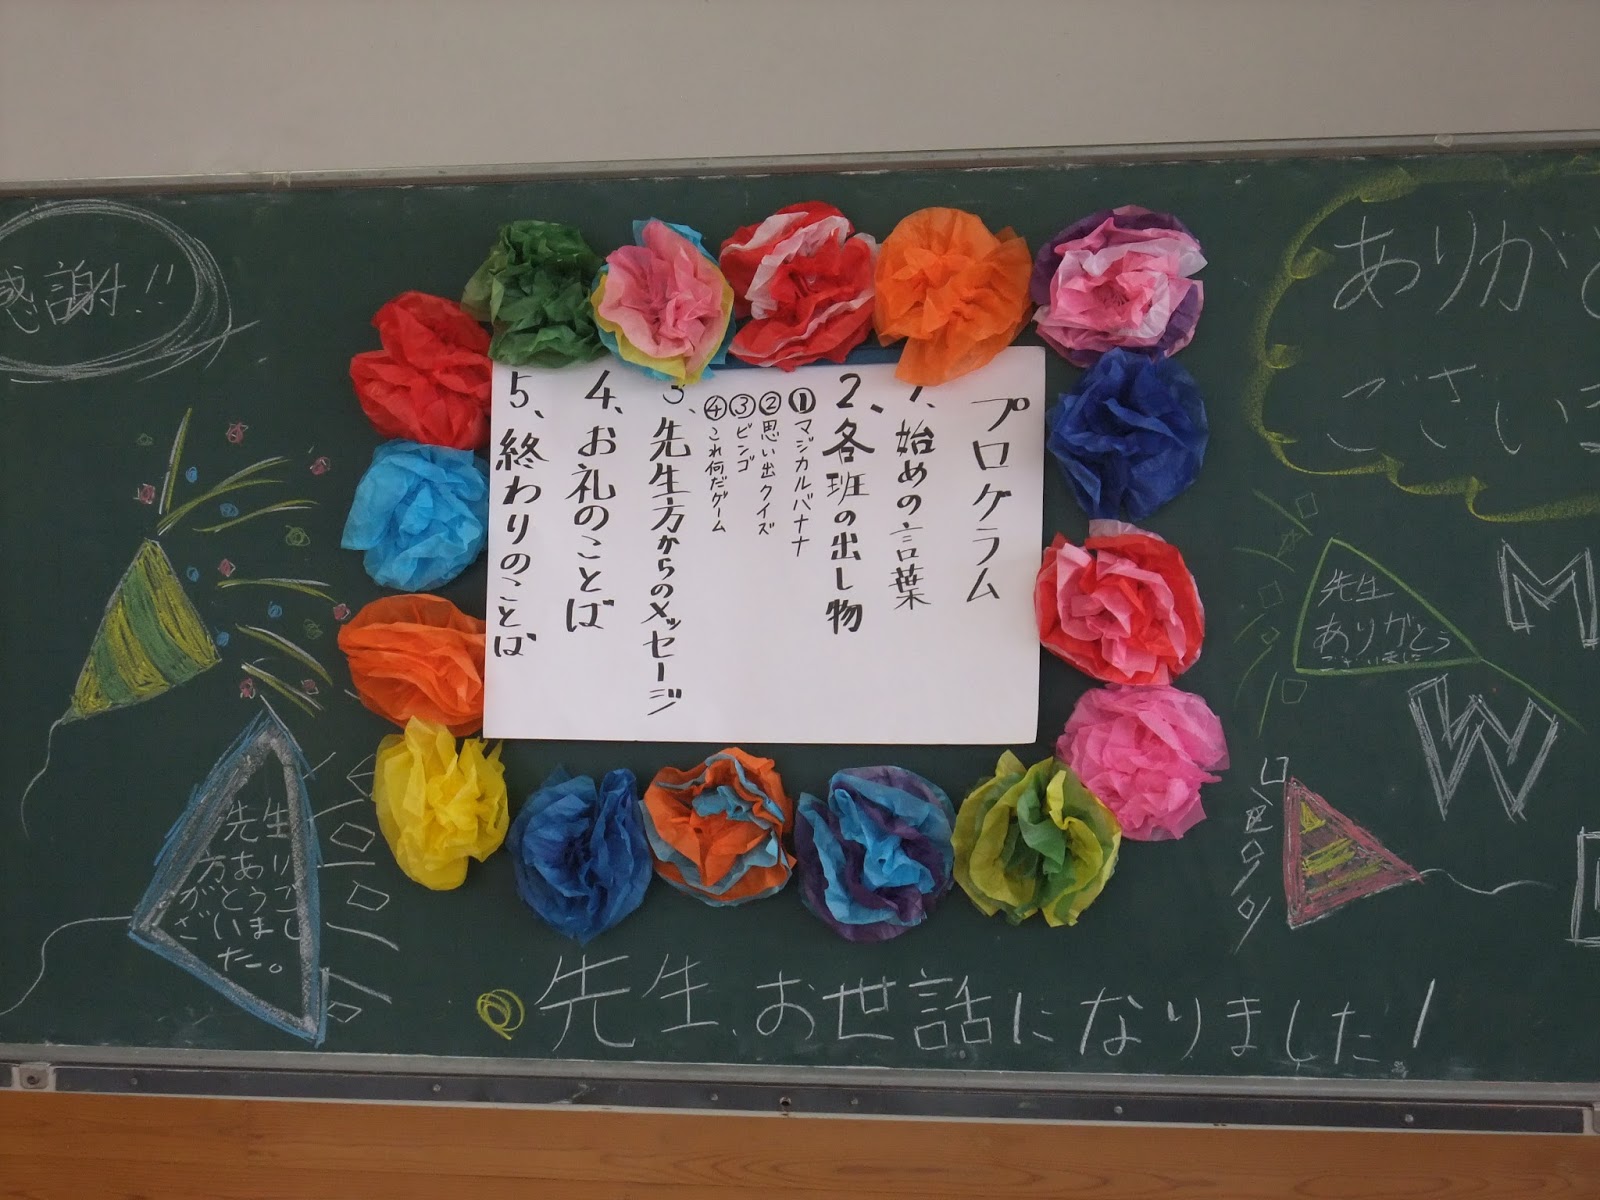 感謝!!
プログラム
1、始めの言葉
2、各班の出し物
①マジカルバナナ
②思い出クイズ
③ビンゴ
④これ何だゲーム
3、先生方からのメッセージ
4、お礼のことば
5、終わりのことば
ありがと
ござい
先生
ありがとう
ございました
M
W
先生
方あり
がとうご
ざいまし
た。
先生、お世話になりました!